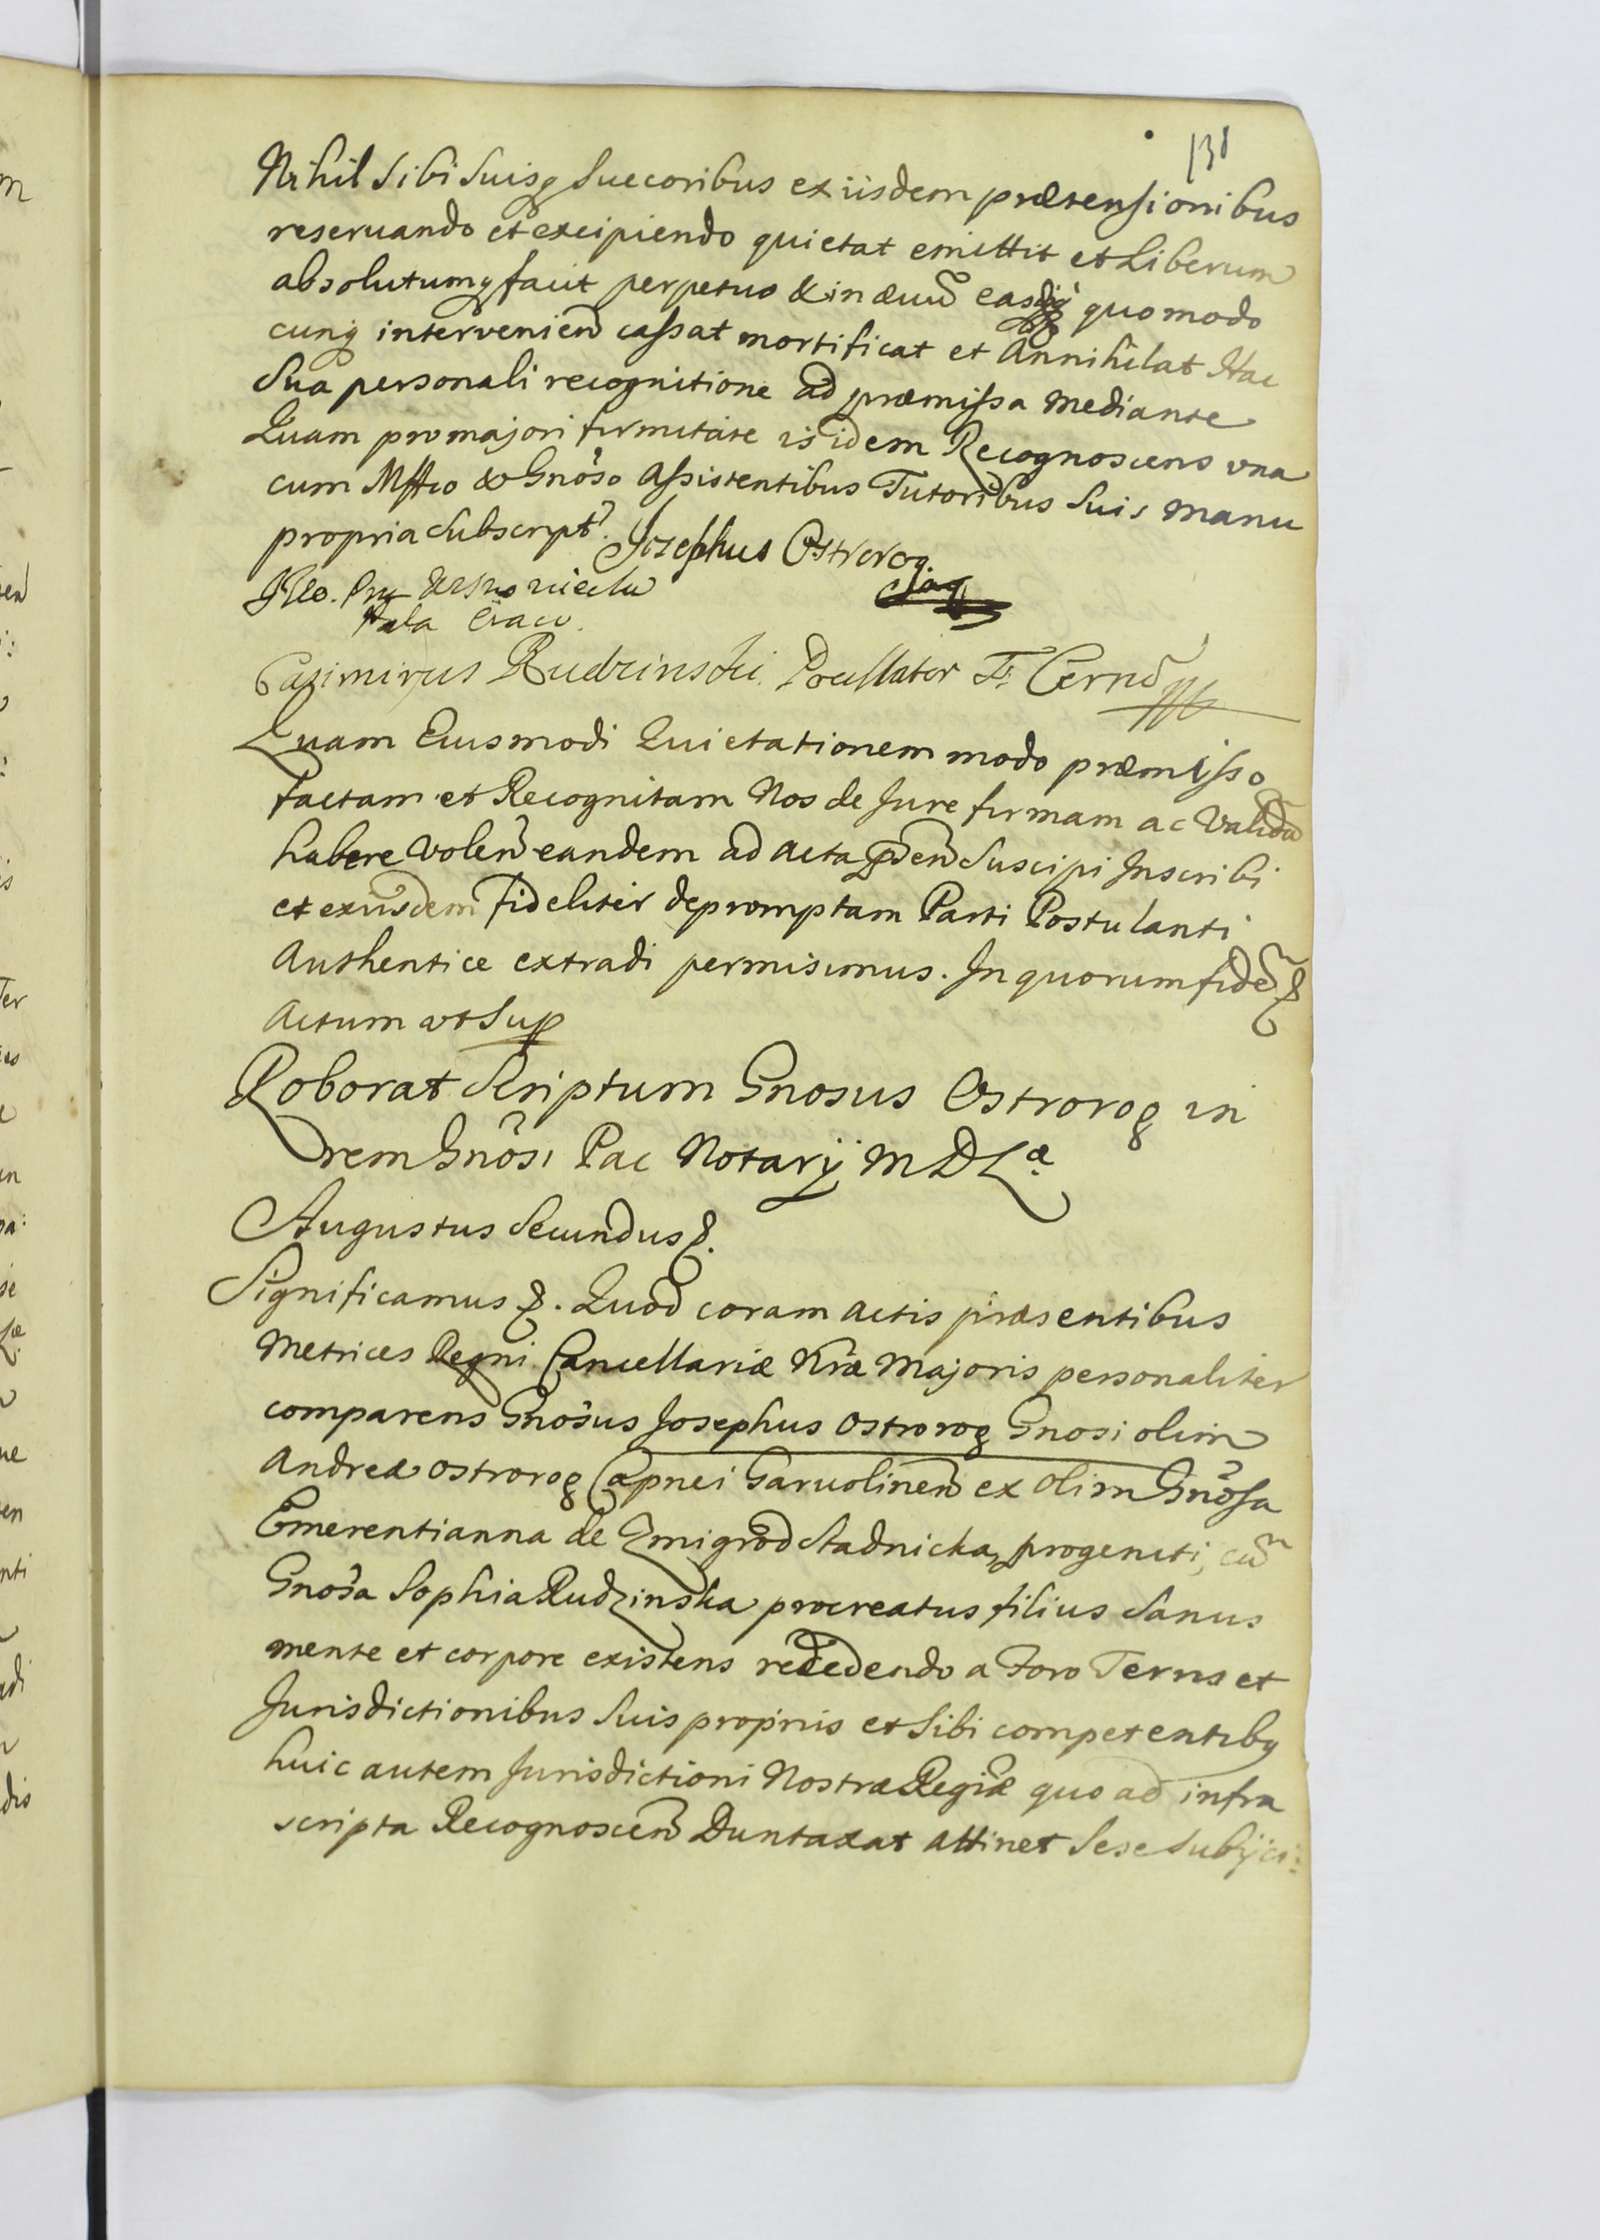 138
Nihil sibi suisq suecoribus ex iisdem prætensionibus
reseruando et excipiendo quietat emittit et Liberum
absolutumq facit perpetuo & in æuũ easdq quomodo
cunq intervenień cassat mortificat et Annihilat Hac
Sua personali recognitione ad præmissa mediante
Quam pro majori firmitate is idem Recognoscens vna
cum Mffco & Gnoso Assistentibus Tutoribus suis manu
propria subscrypt. Josephus Ostrorog.
Casimirus Rudzinski Pocillator T. Cernẽ
Quam Eiusmodi Quietationem modo præmisso
factam et Recognitam Nos de Jure firmam ac validã
habere voleń eandem ad acta pñ suscipi Inscribi
et exiisdem fideliter depromptam Parti Postulanti
Authentice extradi permisimus. In quorum fidẽ &
Actum ut Sup
Roborat Scriptum Gnosus Ostrorog in
rem Gnosi Pac Notarÿ M D L æ
Augustus Secundus &.
Significamus &. Quod coram actis præsentibus
Metrices Regni Cancellariæ Nræ Majoris personaliter
comparens Gnosus Josephus Ostrorog Gnosi olim
Andreæ Ostrorog Capnei Garuolineń ex olim Gnosa
Emerentianna de Zmigrod Stadnicka progeniti, cũ
Gnosa Sophia Rudzinska procreatus filius sanus
mente et corpore existens recedendo a Foro Terris et
Jurisdictionibus suis proprijs et sibi competentibq
huic autem Jurisdictioni Nostræ Regiæ quo ad infra
scripta Recognosceń Duntaxat attinet Sese subijci: